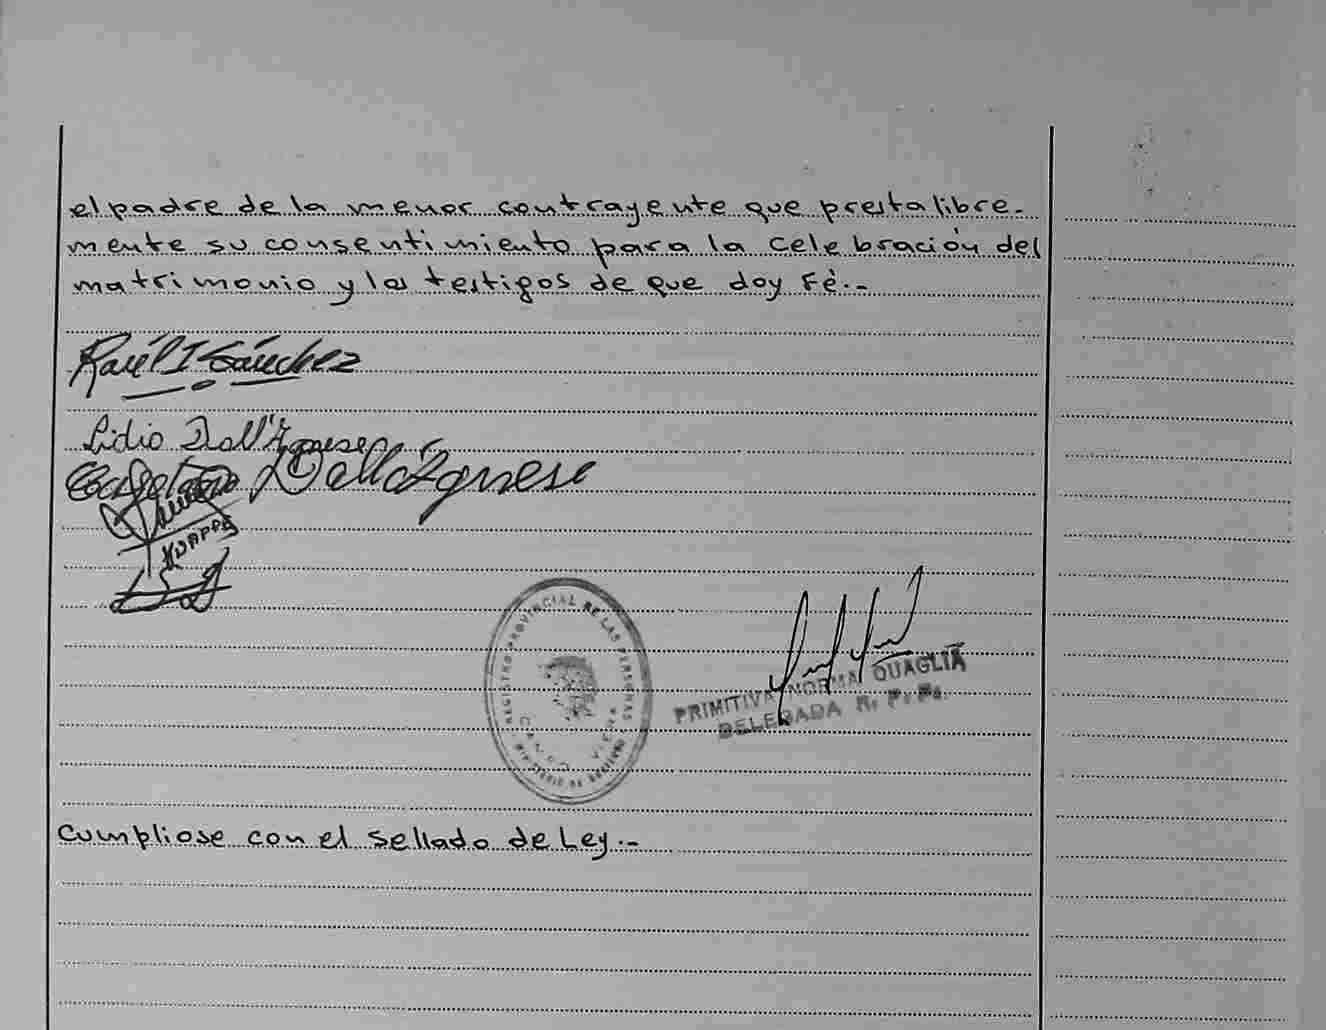 el padre de la menor contrayente que presta libre-
mente su consentimiento para la celebración del
matrimonio y los testigos de que doy Fé.-
Raúl I Sánchez
Lidio Dall'Agnese
Dall'Agnese
REGISTRO PROVINCIAL DE LAS PERSONAS
MINISTERIO DE GOBIERNO
PRIMITIVA NORMA QUAGLIA
DELEGADA R. P. Ps.
Cumpliose con el sellado de Ley.-